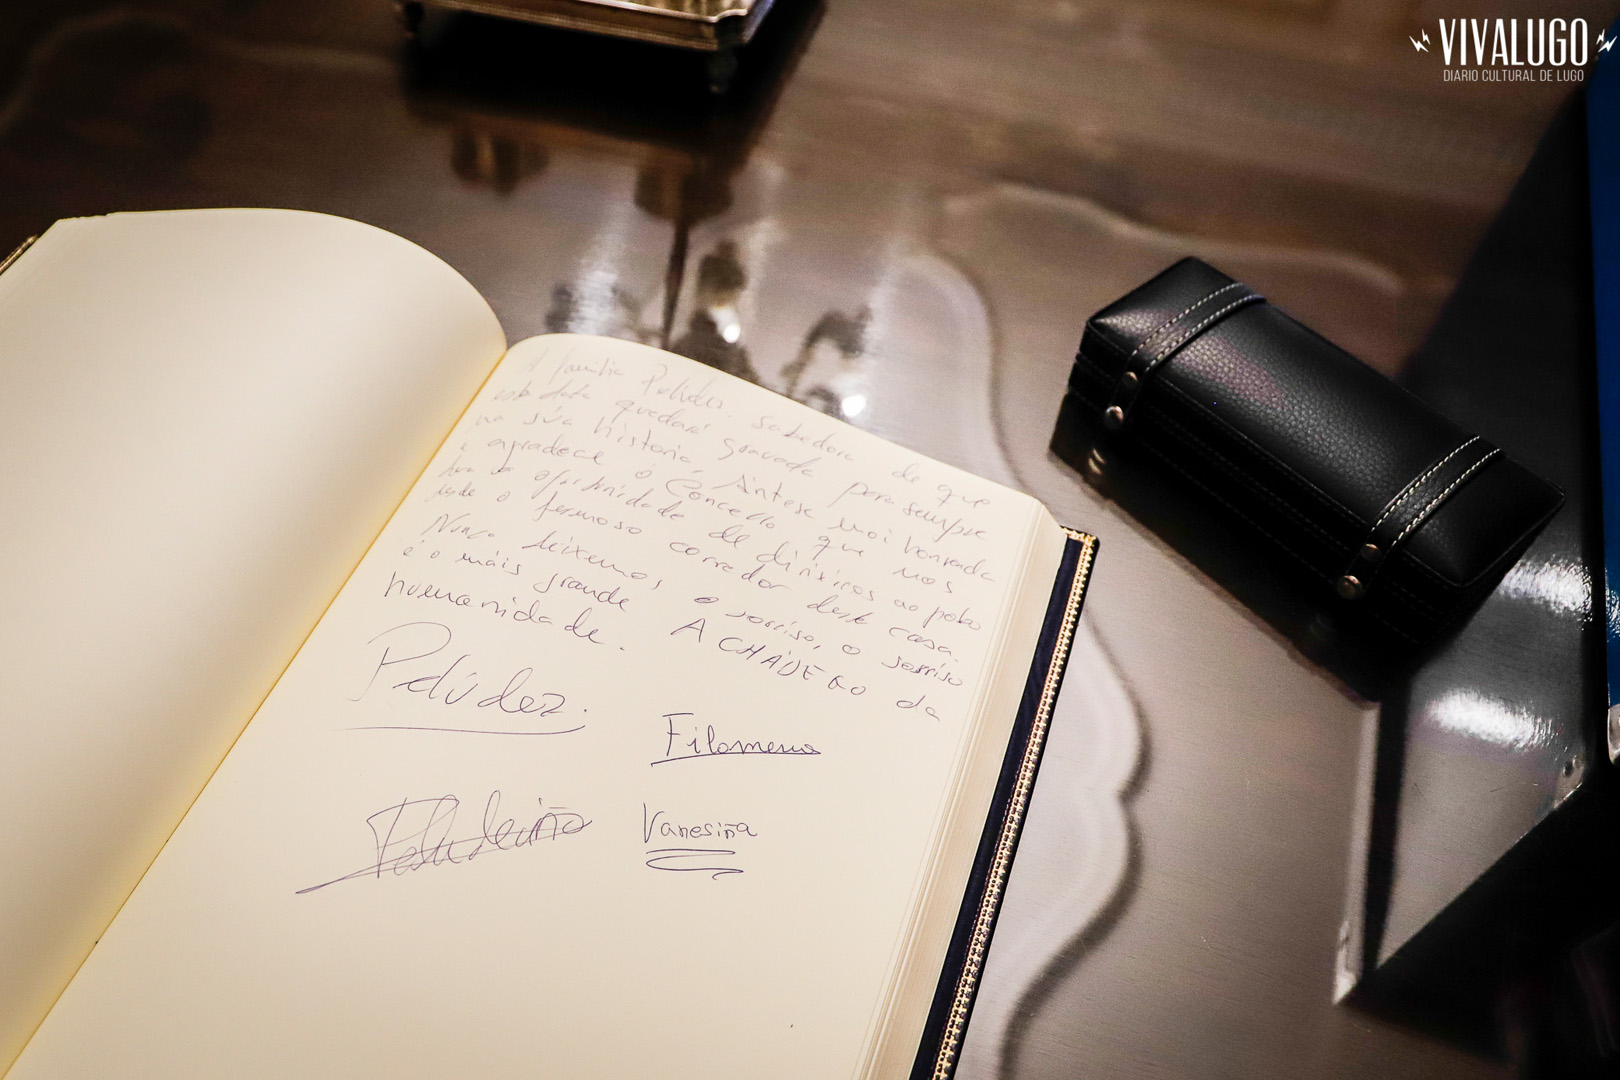 VIVALUGO
DIARIO CULTURAL DE LUGO
A familia Pelúdez, sabedora de que
esta data quedará gravada para sempre
na súa historia, síntese moi honrada
e agradece ó Concello que nos
dea a oportunidade de dirixirnos ao pobo
desde o fermoso corredor desta casa.
Nunca deixemos o sorriso, o sorriso
é o máis grande A CHÁDEGO da
humanidade.
Pelúdez
Filomena
Peludeiriño
Vanesiña